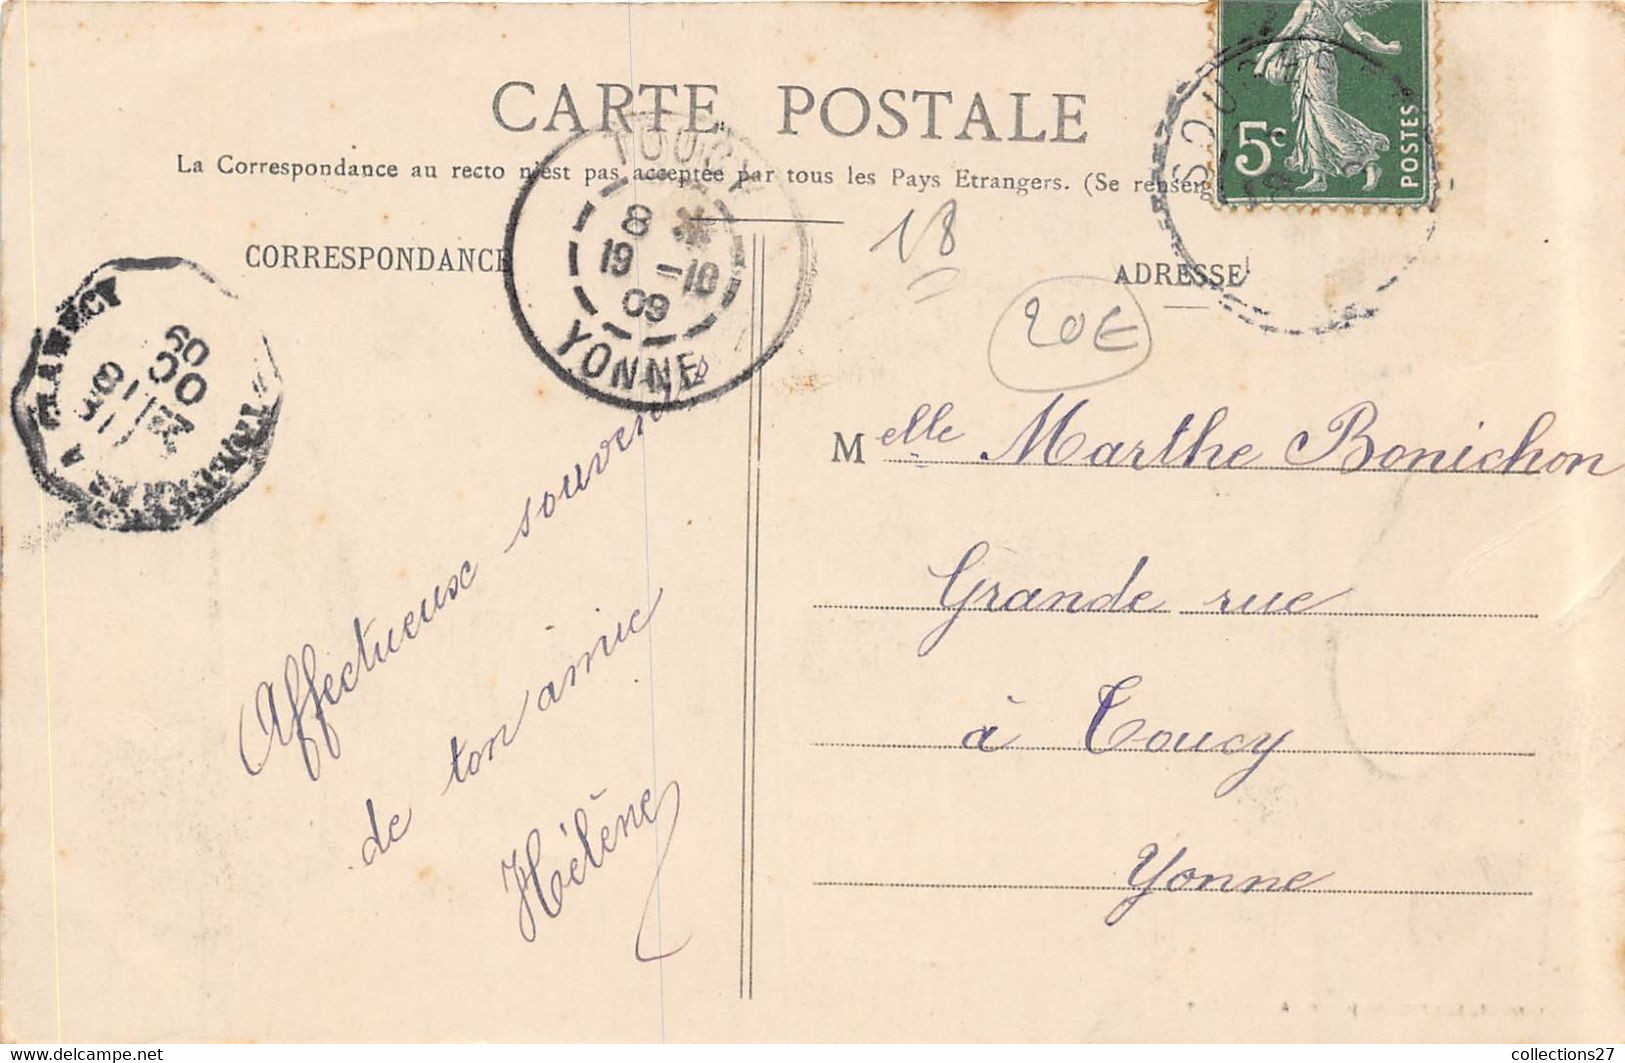 CARTE POSTALE
La Correspondance au recto n'est pas acceptée par tous les Pays Etrangers. (Se renseig
5c
POSTES
TOUCY
8 *
19 -10
09
YONNE
CORRESPONDANCE
ADRESSE
18
20E
Affectueux souvenir
de ton amie
Hélène
Melle Marthe Bonichon
Grande rue
à Toucy
Yonne
collections27